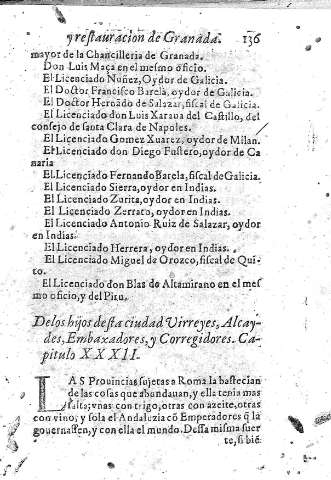 y restauracion de Granada. 136
mayor de la Chancilleria de Granada.
Don Luis Maça en el mesmo oficio.
El Licenciado Nuñez, Oydor de Galicia.
El Doctor Francisco Barela, oydor de Galicia.
El Doctor Hernãdo de Salazar, fiscal de Galicia.
El Licenciado don Luis Xaraua del Castillo, del
consejo de santa Clara de Napoles.
El Licenciado Gomez Xuarez, oydor de Milan.
El Licenciado don Diego Fustero, oydor de Ca
naria
El Licenciado Fernando Barela, fiscal de Galicia.
El Licenciado Sierra, oydor en Indias.
El Licenciado Zurita, oydor en Indias.
El Licenciado Zerrato, oydor en Indias.
El Licenciado Antonio Ruiz de Salazar, oydor
en Indias.
El Licenciado Herrera, oydor en Indias.
El Licenciado Miguel de Orozco, fiscal de Qui
to.
El Licenciado don Blas de Altamirano en el mes
mo oficio, y del Piru.
De los hijos desta ciudad Virreyes, Alcay
des, Embaxadores, y Corregidores. Ca-
pitulo XXXII.
LAS Prouincias sujetas a Roma la bastecian
de las cosas que abundauan, y ella tenia mas
falta; vnas con trigo, otras con azeite, otras
con vino, y sola el Andaluzia cõ Emperadores q̃ la
gouernassen, y con ella el mundo. Dessa misma suer
te, si biē